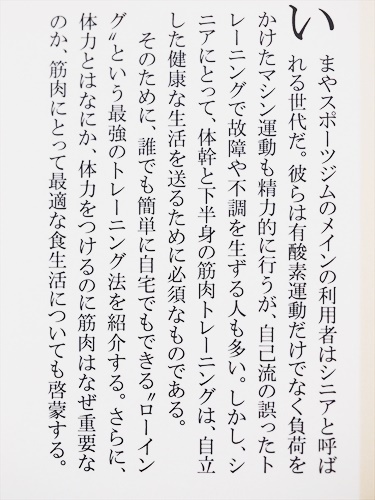 いまやスポーツジムのメインの利用者はシニアと呼ば
れる世代だ。彼らは有酸素運動だけでなく負荷を
かけたマシン運動も精力的に行うが、自己流の誤ったト
レーニングで故障や不調を生ずる人も多い。しかし、シ
ニアにとって、体幹と下半身の筋肉トレーニングは、自立
した健康な生活を送るために必須なものである。
そのために、誰でも簡単に自宅でもできる〝ローイン
グ〟という最強のトレーニング法を紹介する。さらに、
体力とはなにか、体力をつけるのに筋肉はなぜ重要な
のか、筋肉にとって最適な食生活についても啓蒙する。